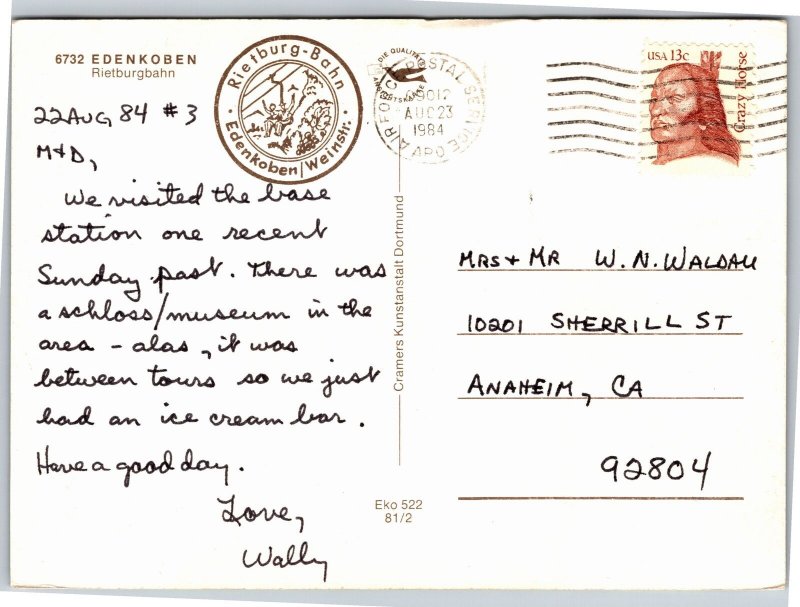 6732 EDENKOBEN
Rietburgbahn
Rietburg-Bahn
Edenkoben/Weinstr.
22 AUG 84 #3
M+D,
We visited the base
station one recent
Sunday past. There was
a schloss/museum in the
area - alas, it was
between tours so we just
had an ice cream bar.
Have a good day.
Love,
Wally
Cramers Kunstanstalt Dortmund
Eko 522
81/2
DIE QUALITÄTS
POSTAL SERVICE
AIR FORCE
09012
AUG 23
1984
APO
USA 13c
Crazy Horse
MRS + MR W. N. WALDAU
10201 SHERRILL ST
ANAHEIM, CA
92804